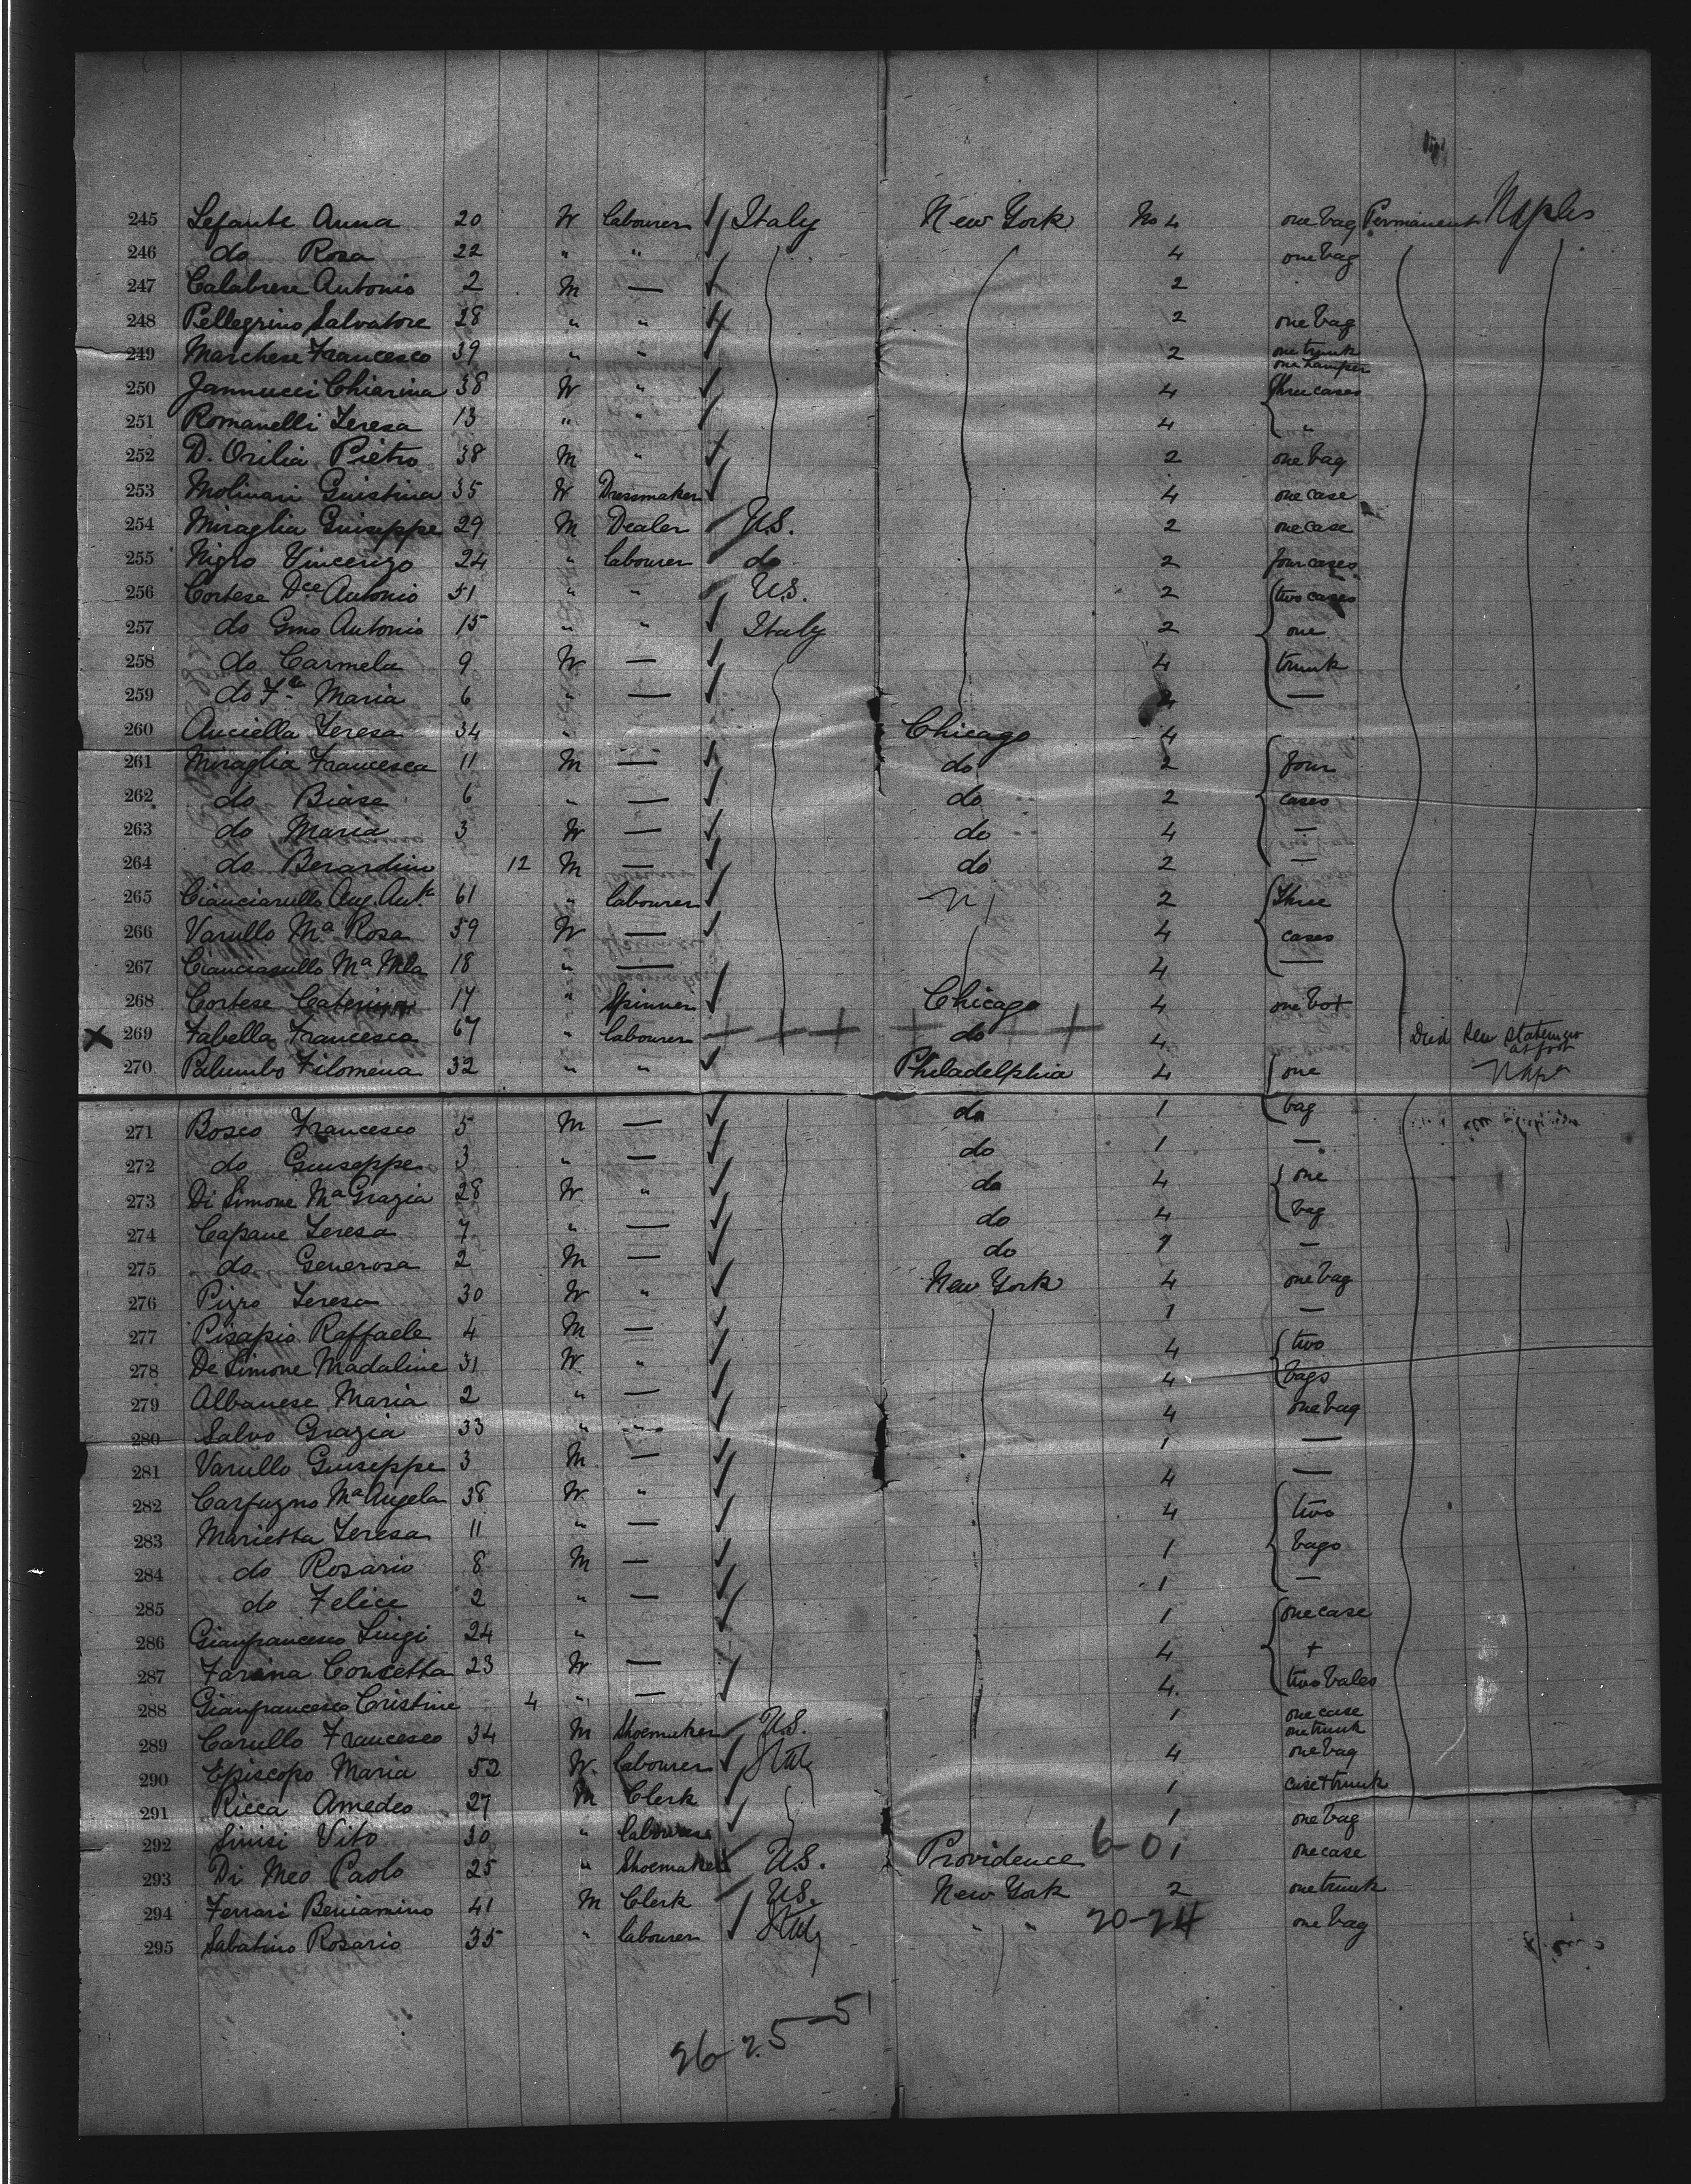 245 Lefante Anna 20 W labourer Italy New York No 4 one bag Permanent Naples
246 do Rosa 22 " " 4 one bag
247 Calabrese Antonio 2 M — 2
248 Pellegrino Salvatore 28 " " 2 one bag
249 Marchese Francesco 39 " " 2 one trunk one hamper
250 Jannucci Chiarina 38 W " 4 three cases
251 Romanelli Teresa 13 " " 4 "
252 D. Orilia Pietro 38 M " 2 one bag
253 Molinari Guistina 35 W Dressmaker 4 one case
254 Miraglia Guiseppe 29 M Dealer U.S. 2 one case
255 Nigro Vincenzo 24 " labourer do 2 four cases
256 Cortese Dce Antonio 51 " " U.S. 2 two cases
257 do Gmo Antonio 15 " " Italy 2 one
258 do Carmela 9 W — 4 trunk
259 do Fca Maria 6 " — —
260 Auciella Teresa 34 " Chicago 4
261 Miraglia Francesca 11 M — do 2 four
262 do Biase 6 " — do 2 cases
263 do Maria 3 W — do 4 —
264 do Berardino 12 M — do 2 —
265 Cianciarullo Ang. Anta 61 " labourer N Y 2 Three
266 Varullo Ma Rosa 59 W — 4 cases
267 Cianciarullo Ma Mla 18 " — 4 —
268 Cortese Caterina 17 " Spinner Chicago 4 one box
X 269 Fabella Francesca 67 " labourer + + + + do + + 4 Died See statement at foot
270 Palumbo Filomena 32 " " Philadelphia 4 one Naps
271 Bosco Francesco 5 M — do 1 bag
272 do Guiseppe 3 " — do 1 —
273 Di Simone Ma Grazia 28 W " do 4 one
274 Capane Teresa 7 " — do 4 bag
275 do Generosa 2 M — do 1 —
276 Pizro Teresa 30 W " New York 4 one bag
277 Pisapio Raffaele 4 M — 1 —
278 De Simone Madaline 31 W " 4 two
279 Albanese Maria 2 " — 4 bags
280 Salvo Grazia 33 " " 4 one bag
281 Varullo Guiseppe 3 M — 1 —
282 Carfugno Ma Angela 38 W " 4 —
283 Marietta Teresa 11 " — 4 two
284 do Rosario 8 M — 1 bags
285 do Felice 2 " — 1 —
286 Gianfrancesco Luigi 24 " 1 one case
287 Farina Concetta 23 W — 4 +
288 Gianfrancesco Cristine 4 " — 4 two bales
289 Carullo Francesco 34 M Shoemaker U.S. 1 one case one trunk
290 Episcopo Maria 52 W. labourer Italy 4 one bag
291 Ricca Amedeo 27 M Clerk 1 case + trunk
292 Sinisi Vito 30 " labourer 1 one bag
293 Di Meo Paolo 25 " Shoemaker U.S. Providence 6-01 one case
294 Ferrari Beniamino 41 M Clerk U.S. New York 2 one trunk
295 Sabatino Rosario 35 " labourer Italy " " 20-24 one bag
26-25-51